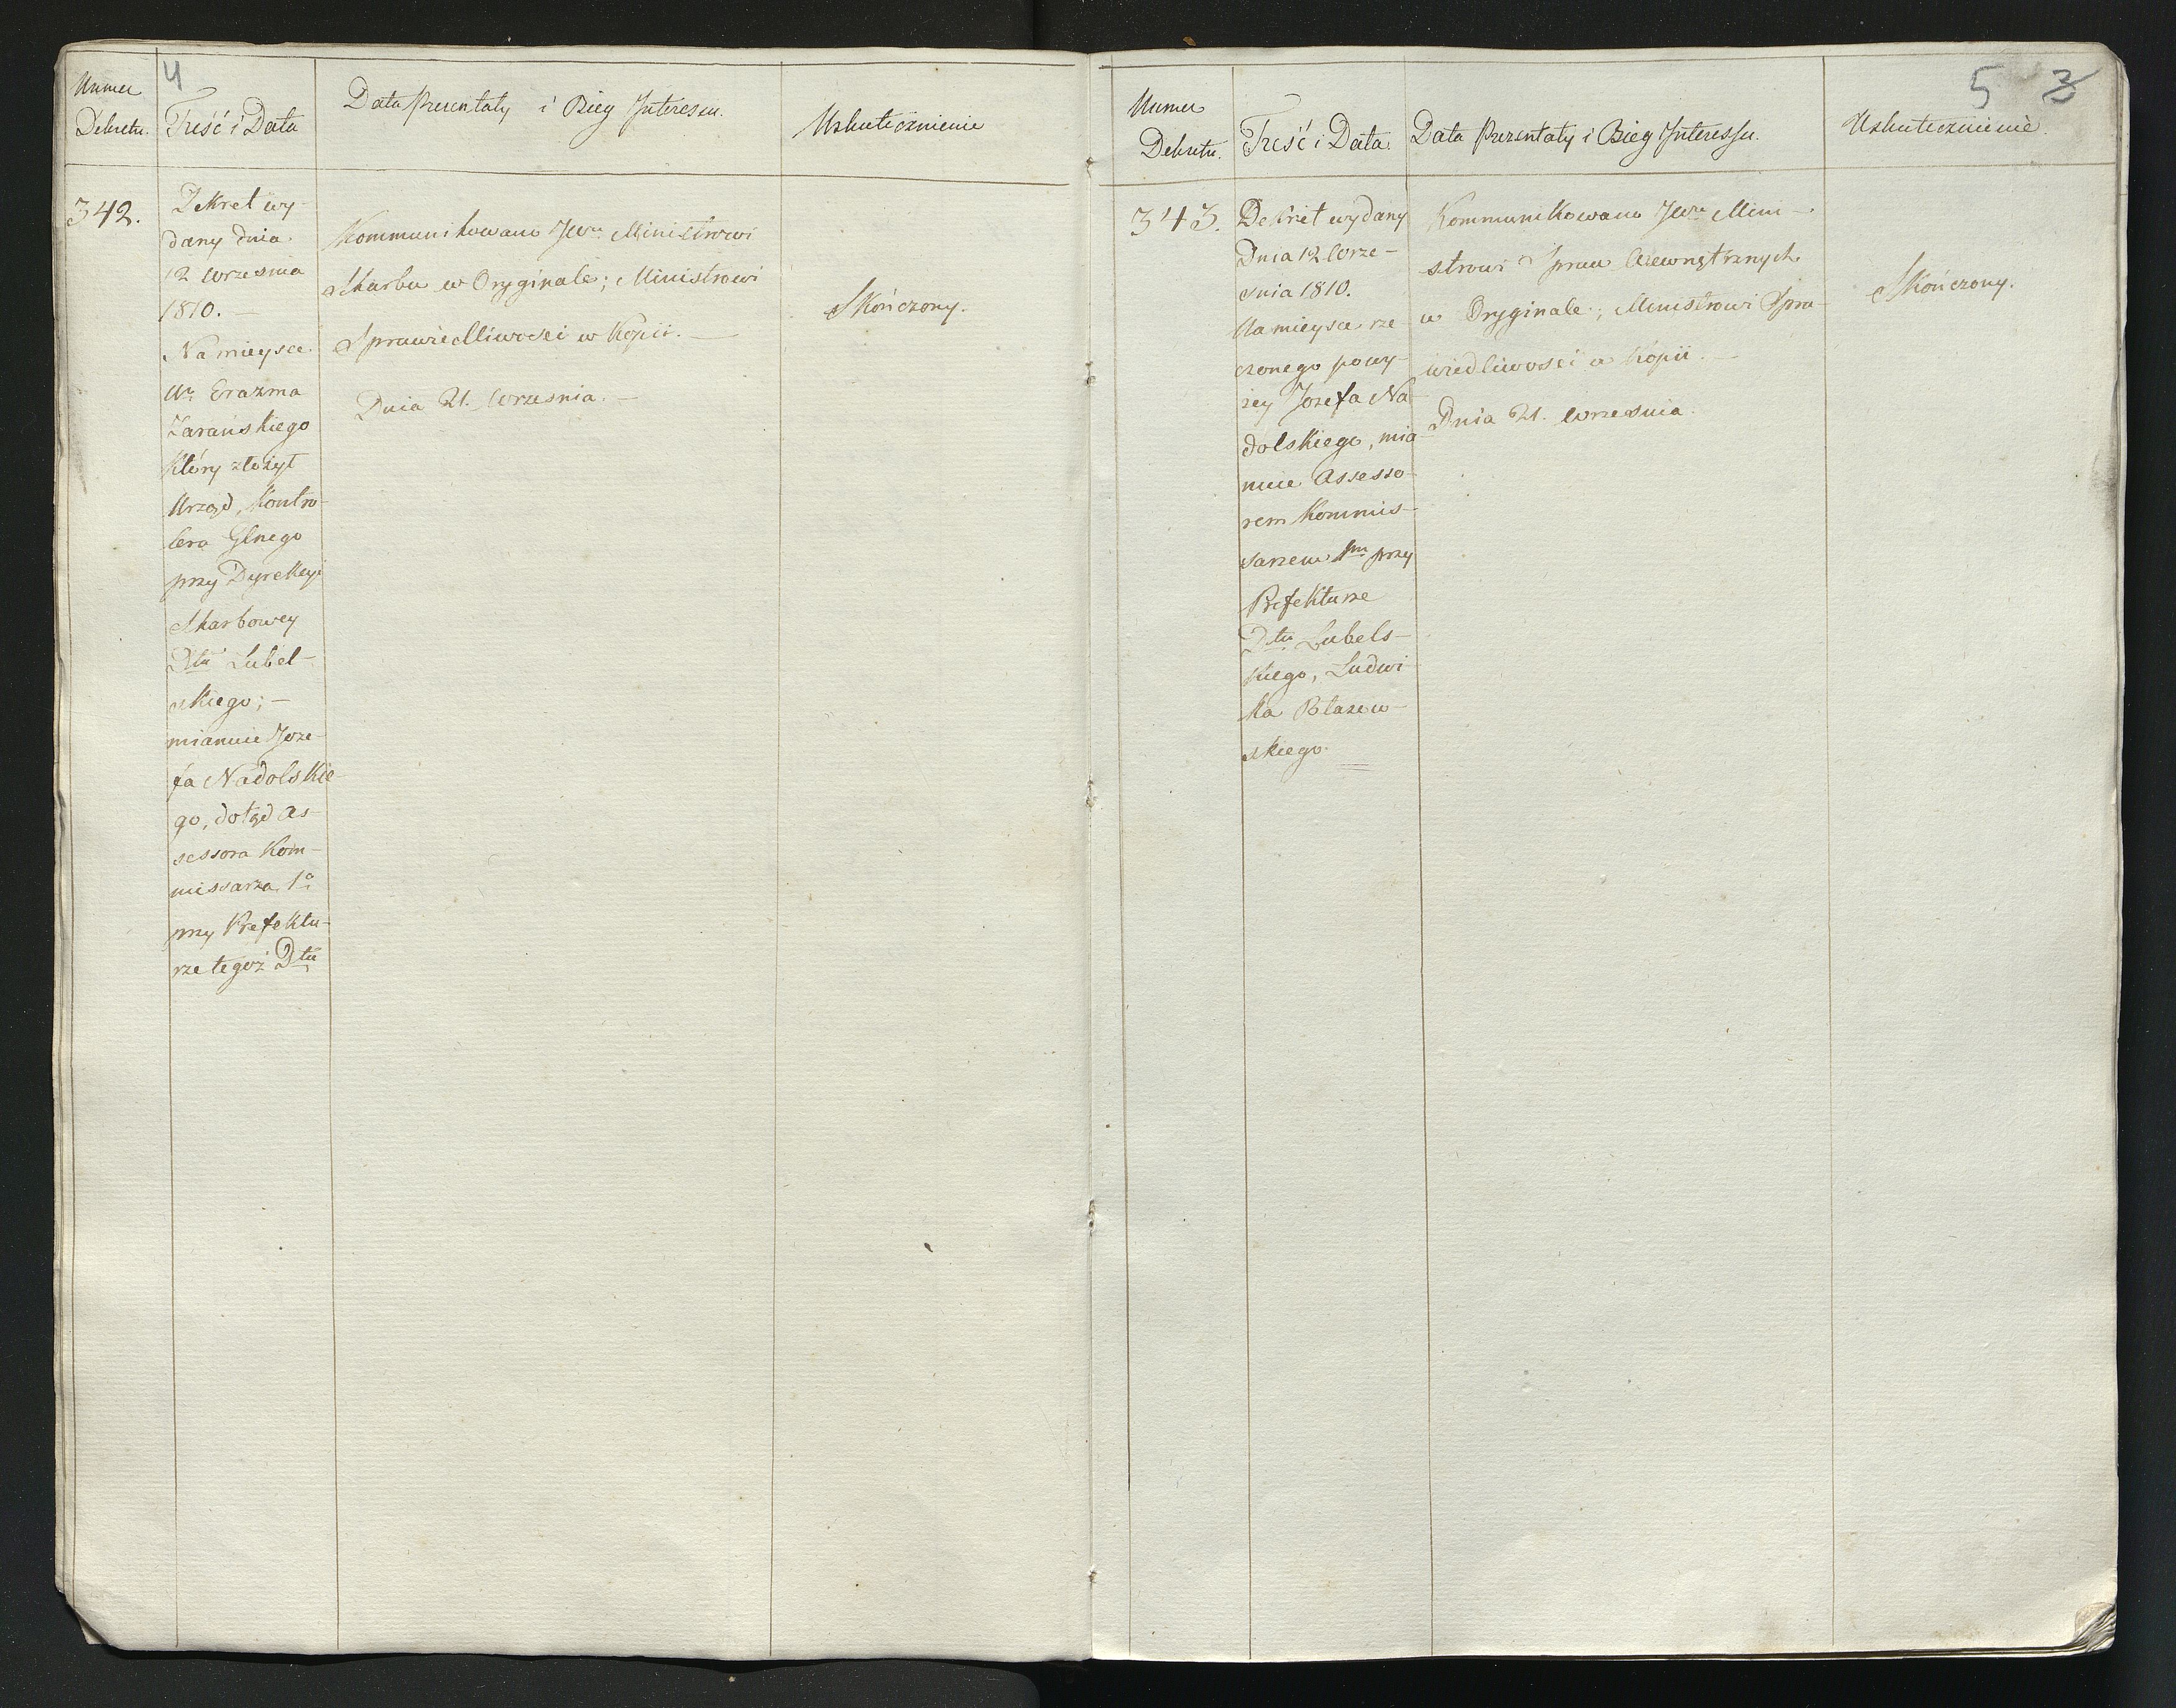 4
Numer
Dekretu.
Treść i Data
Data Prezentaty i Bieg Interesu.
Uskutecznienie
342.
Dekret wy-
dany dnia
12 Września
1810. —
Na mieysce
Wo Erazma
Zarańskiego
który złożył
Urząd, Kontro-
lera Glnego
przy Dyrekcyi
Skarbowey
Dtu Lubel-
skiego; —
mianuie Joze-
fa Nadolskie-
go, dotąd As-
sessora Kom-
missarza 1o
przy Prefektu-
rze tegoż Dtu
Kommunikowano JWu Ministrowi
Skarbu w Oryginale; Ministrowi
Sprawiedliwosci w Kopii. —
Dnia 21. Wrzesnia. —
Skończony.
5 3
Numer
Dekretu.
Treść i Data
Data Prezentaty i Bieg Interessu.
Uskutecznienie.
343.
Dekret wydany
Dnia 12 Wrze-
snia 1810.
Na mieysce rze-
czonego powy-
zey Jozefa Na-
dolskiego, mia-
nuie Assesso-
rem Kommis-
sarzem 1m przy
Prefekturze
Dtu Lubels-
kiego, Ludwi-
ka Błazew-
skiego.
Kommunikowano JWu Mini-
strowi Spraw Wewnętrznych
w Oryginale; Ministrowi Spra-
wiedliwosci w Kopii. —
Dnia 21. Wrzesnia.
Skończony.